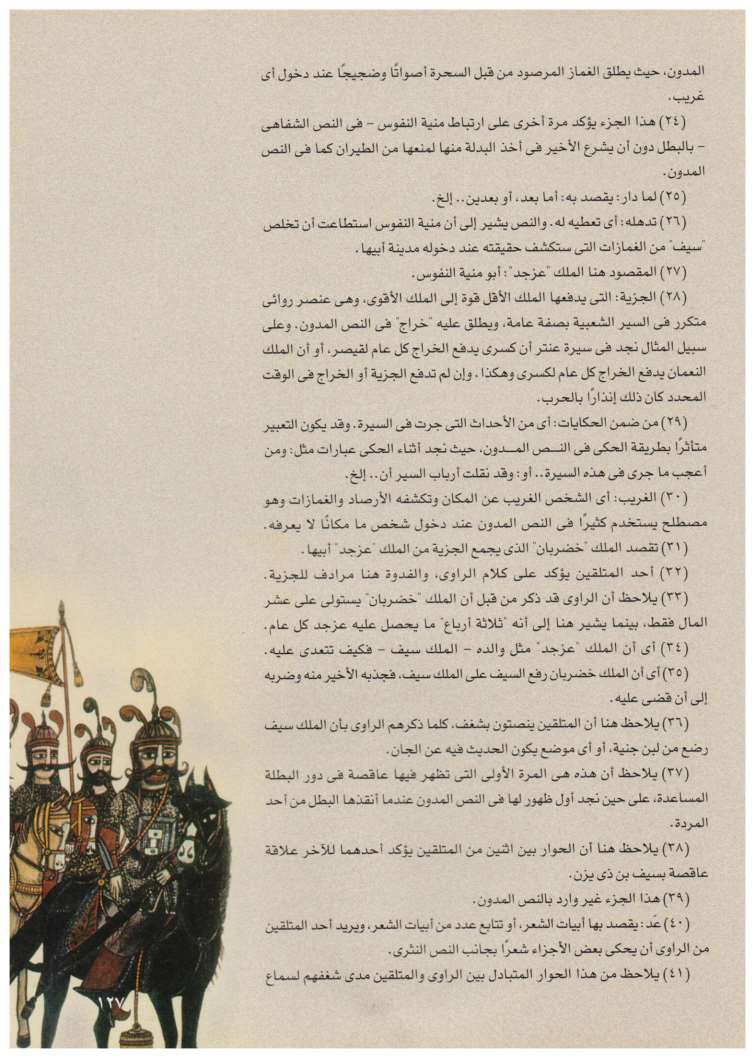 المدون، حيث يطلق الغماز المرصود من قبل السحرة أصواتًا وضجيجًا عند دخول أى
غريب.
(٢٤) هذا الجزء يؤكد مرة أخرى على ارتباط منية النفوس – فى النص الشفاهى
– بالبطل دون أن يشرع الأخير فى أخذ البدلة منها لمنعها من الطيران كما فى النص
المدون.
(٢٥) لما دار: يقصد به: أما بعد، أو بعدين.. إلخ.
(٢٦) تدهله: أى تعطيه له. والنص يشير إلى أن منية النفوس استطاعت أن تخلص
"سيف" من الغمازات التى ستكشف حقيقته عند دخوله مدينة أبيها.
(٢٧) المقصود هنا الملك "عزجد": أبو منية النفوس.
(٢٨) الجزية: التى يدفعها الملك الأقل قوة إلى الملك الأقوى، وهى عنصر روائى
متكرر فى السير الشعبية بصفة عامة، ويطلق عليه "خراج" فى النص المدون. وعلى
سبيل المثال نجد فى سيرة عنتر أن كسرى يدفع الخراج كل عام لقيصر، أو أن الملك
النعمان يدفع الخراج كل عام لكسرى وهكذا. وإن لم تدفع الجزية أو الخراج فى الوقت
المحدد كان ذلك إنذارًا بالحرب.
(٢٩) من ضمن الحكايات: أى من الأحداث التى جرت فى السيرة. وقد يكون التعبير
متأثرًا بطريقة الحكى فى النــص المــدون، حيث نجد أثناء الحكى عبارات مثل: ومن
أعجب ما جرى فى هذه السيرة.. أو: وقد نقلت أرباب السير أن.. إلخ.
(٣٠) الغريب: أى الشخص الغريب عن المكان وتكشفه الأرصاد والغمازات وهو
مصطلح يستخدم كثيرًا فى النص المدون عند دخول شخص ما مكانًا لا يعرفه.
(٣١) تقصد الملك "خضربان" الذى يجمع الجزية من الملك "عزجد" أبيها.
(٣٢) أحد المتلقين يؤكد على كلام الراوى، والفدوة هنا مرادف للجزية.
(٣٣) يلاحظ أن الراوى قد ذكر من قبل أن الملك "خضربان" يستولى على عشر
المال فقط، بينما يشير هنا إلى أنه "ثلاثة أرباع" ما يحصل عليه عزجد كل عام.
(٣٤) أى أن الملك "عزجد" مثل والده – الملك سيف – فكيف تتعدى عليه.
(٣٥) أى أن الملك خضربان رفع السيف على الملك سيف، فجذبه الأخير منه وضربه
إلى أن قضى عليه.
(٣٦) يلاحظ هنا أن المتلقين ينصتون بشغف، كلما ذكرهم الراوى بأن الملك سيف
رضع من لبن جنية، أو أى موضع يكون الحديث فيه عن الجان.
(٣٧) يلاحظ أن هذه هى المرة الأولى التى تظهر فيها عاقصة فى دور البطلة
المساعدة، على حين نجد أول ظهور لها فى النص المدون عندما أنقذها البطل من أحد
المردة.
(٣٨) يلاحظ هنا أن الحوار بين اثنين من المتلقين يؤكد أحدهما للآخر علاقة
عاقصة بسيف بن ذى يزن.
(٣٩) هذا الجزء غير وارد بالنص المدون.
(٤٠) عَد: يقصد بها أبيات الشعر، أو تتابع عدد من أبيات الشعر، ويريد أحد المتلقين
من الراوى أن يحكى بعض الأجزاء شعرًا بجانب النص النثرى.
(٤١) يلاحظ من هذا الحوار المتبادل بين الراوى والمتلقين مدى شغفهم لسماع
١٢٧